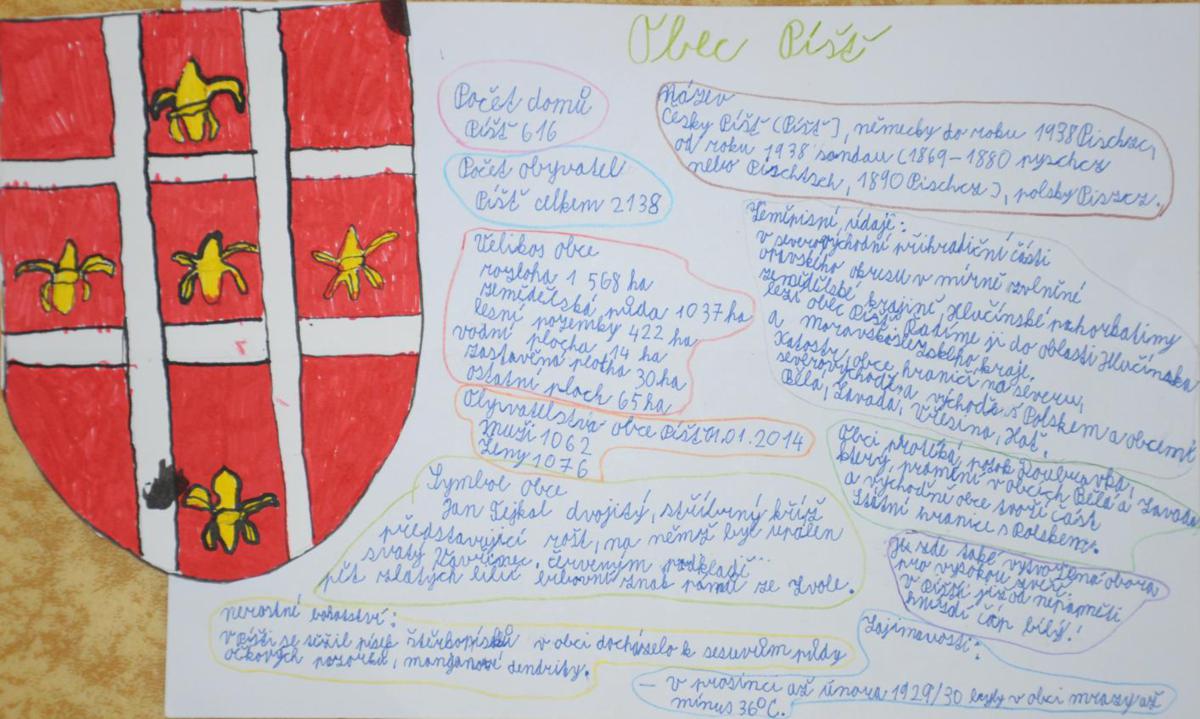 Obec Píšť
Počet domů
Píšť 616
Název
česky Píšť (Píšť], německy do roku 1938 Pischzc,
od roku 1938 sandau (1869-1880 pyschcz
nebo Pischtsch, 1890 Pischcz), polsky Piszcz.
Počet obyvatel
Píšť celkem 2138
Velikos obce
rozloha 1 568 ha
zemědělská půda 1037 ha
lesní pozemky 422 ha
vodní plocha 14 ha
zastavěná plocha 30 ha
ostatní ploch 65 ha
Zeměpisné údaje:
v severovýchodní příhraniční části
opavského okresu v mírně zvlněné
zemědělské krajině Hlučínské pahorkatiny
leží obec Píšť. Řadíme ji do oblasti Hlučínska
a moravskoslezského kraje.
obce hraničí na severu,
východě s Polskem a obcemi
Bělá, Závada, Vřesina, Hať.
Obyvatelstvo obce Píšť 01.01.2014
muži 1062
ženy 1076
Obcí protéká potok
který pramení v obcích Bělá a Závada
a východně obce tvoří část
státní hranice s Polskem.
Symbol obce
Jan dvojitý, stříbrný kříž
představující rošt, na němž byl upálen
svatý Vavřinec, červeným podkladě
pět zlatých lilií erbovní znak pánů ze Zvole.
Je zde také vytvořena obora
pro vysokou zvěř.
v Píšti již od nepaměti
hnízdí čáp bílý!
nerostné bohatství:
v píšti se těžil písek v obci docházelo k sesuvům půdy
manganové dendrity.
Zajímavosti:
- v prosinci až února 1929/30 byly v obci mrazy až
mínus 36°C.